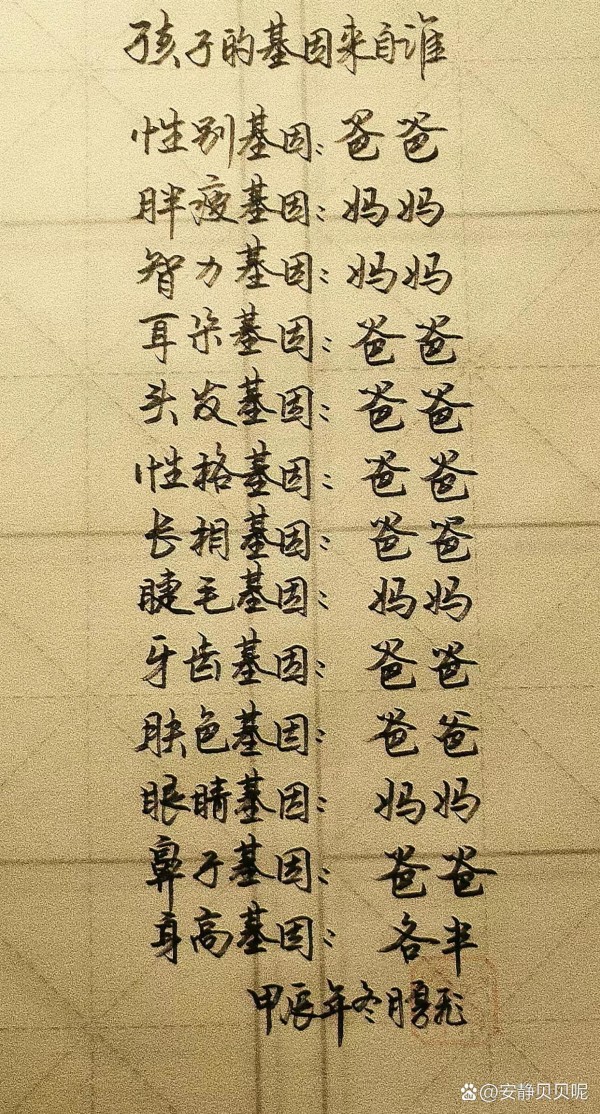 孩子的基因来自谁
性别基因：爸爸
胖瘦基因：妈妈
智力基因：妈妈
耳朵基因：爸爸
头发基因：爸爸
性格基因：爸爸
长相基因：爸爸
睫毛基因：妈妈
牙齿基因：爸爸
肤色基因：爸爸
眼睛基因：妈妈
鼻子基因：爸爸
身高基因：各半
甲辰年冬月
安静贝贝呢